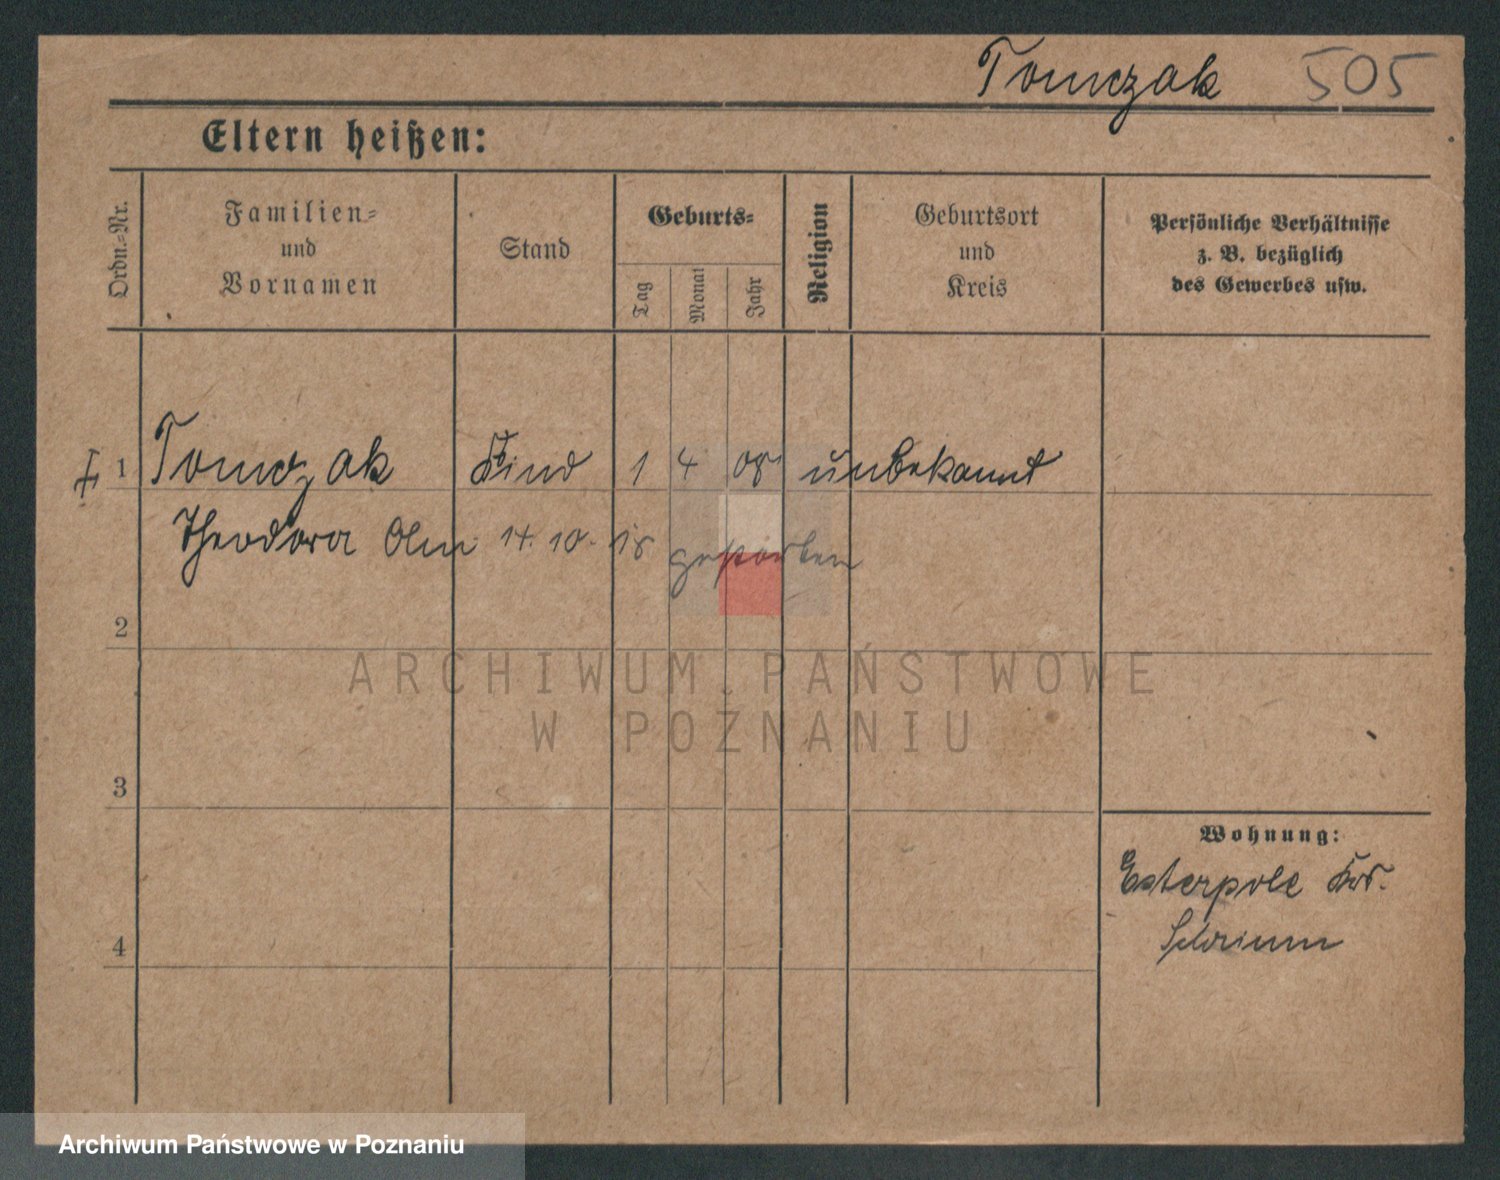 Tomczak 505
Eltern heißen:
Ordn.=Nr.
Familien=
und
Vornamen
Stand
Geburts=
Tag
Monat
Jahr
Religion
Geburtsort
und
Kreis
Persönliche Verhältnisse
z. B. bezüglich
des Gewerbes usw.
1 Tomczak Kind 1 4 08 unbekannt
Theodora Am 14. 10. 18 gestorben
2
3
4
Wohnung:
Krs.
Schrimm
ARCHIWUM PAŃSTWOWE
W POZNANIU
Archiwum Państwowe w Poznaniu